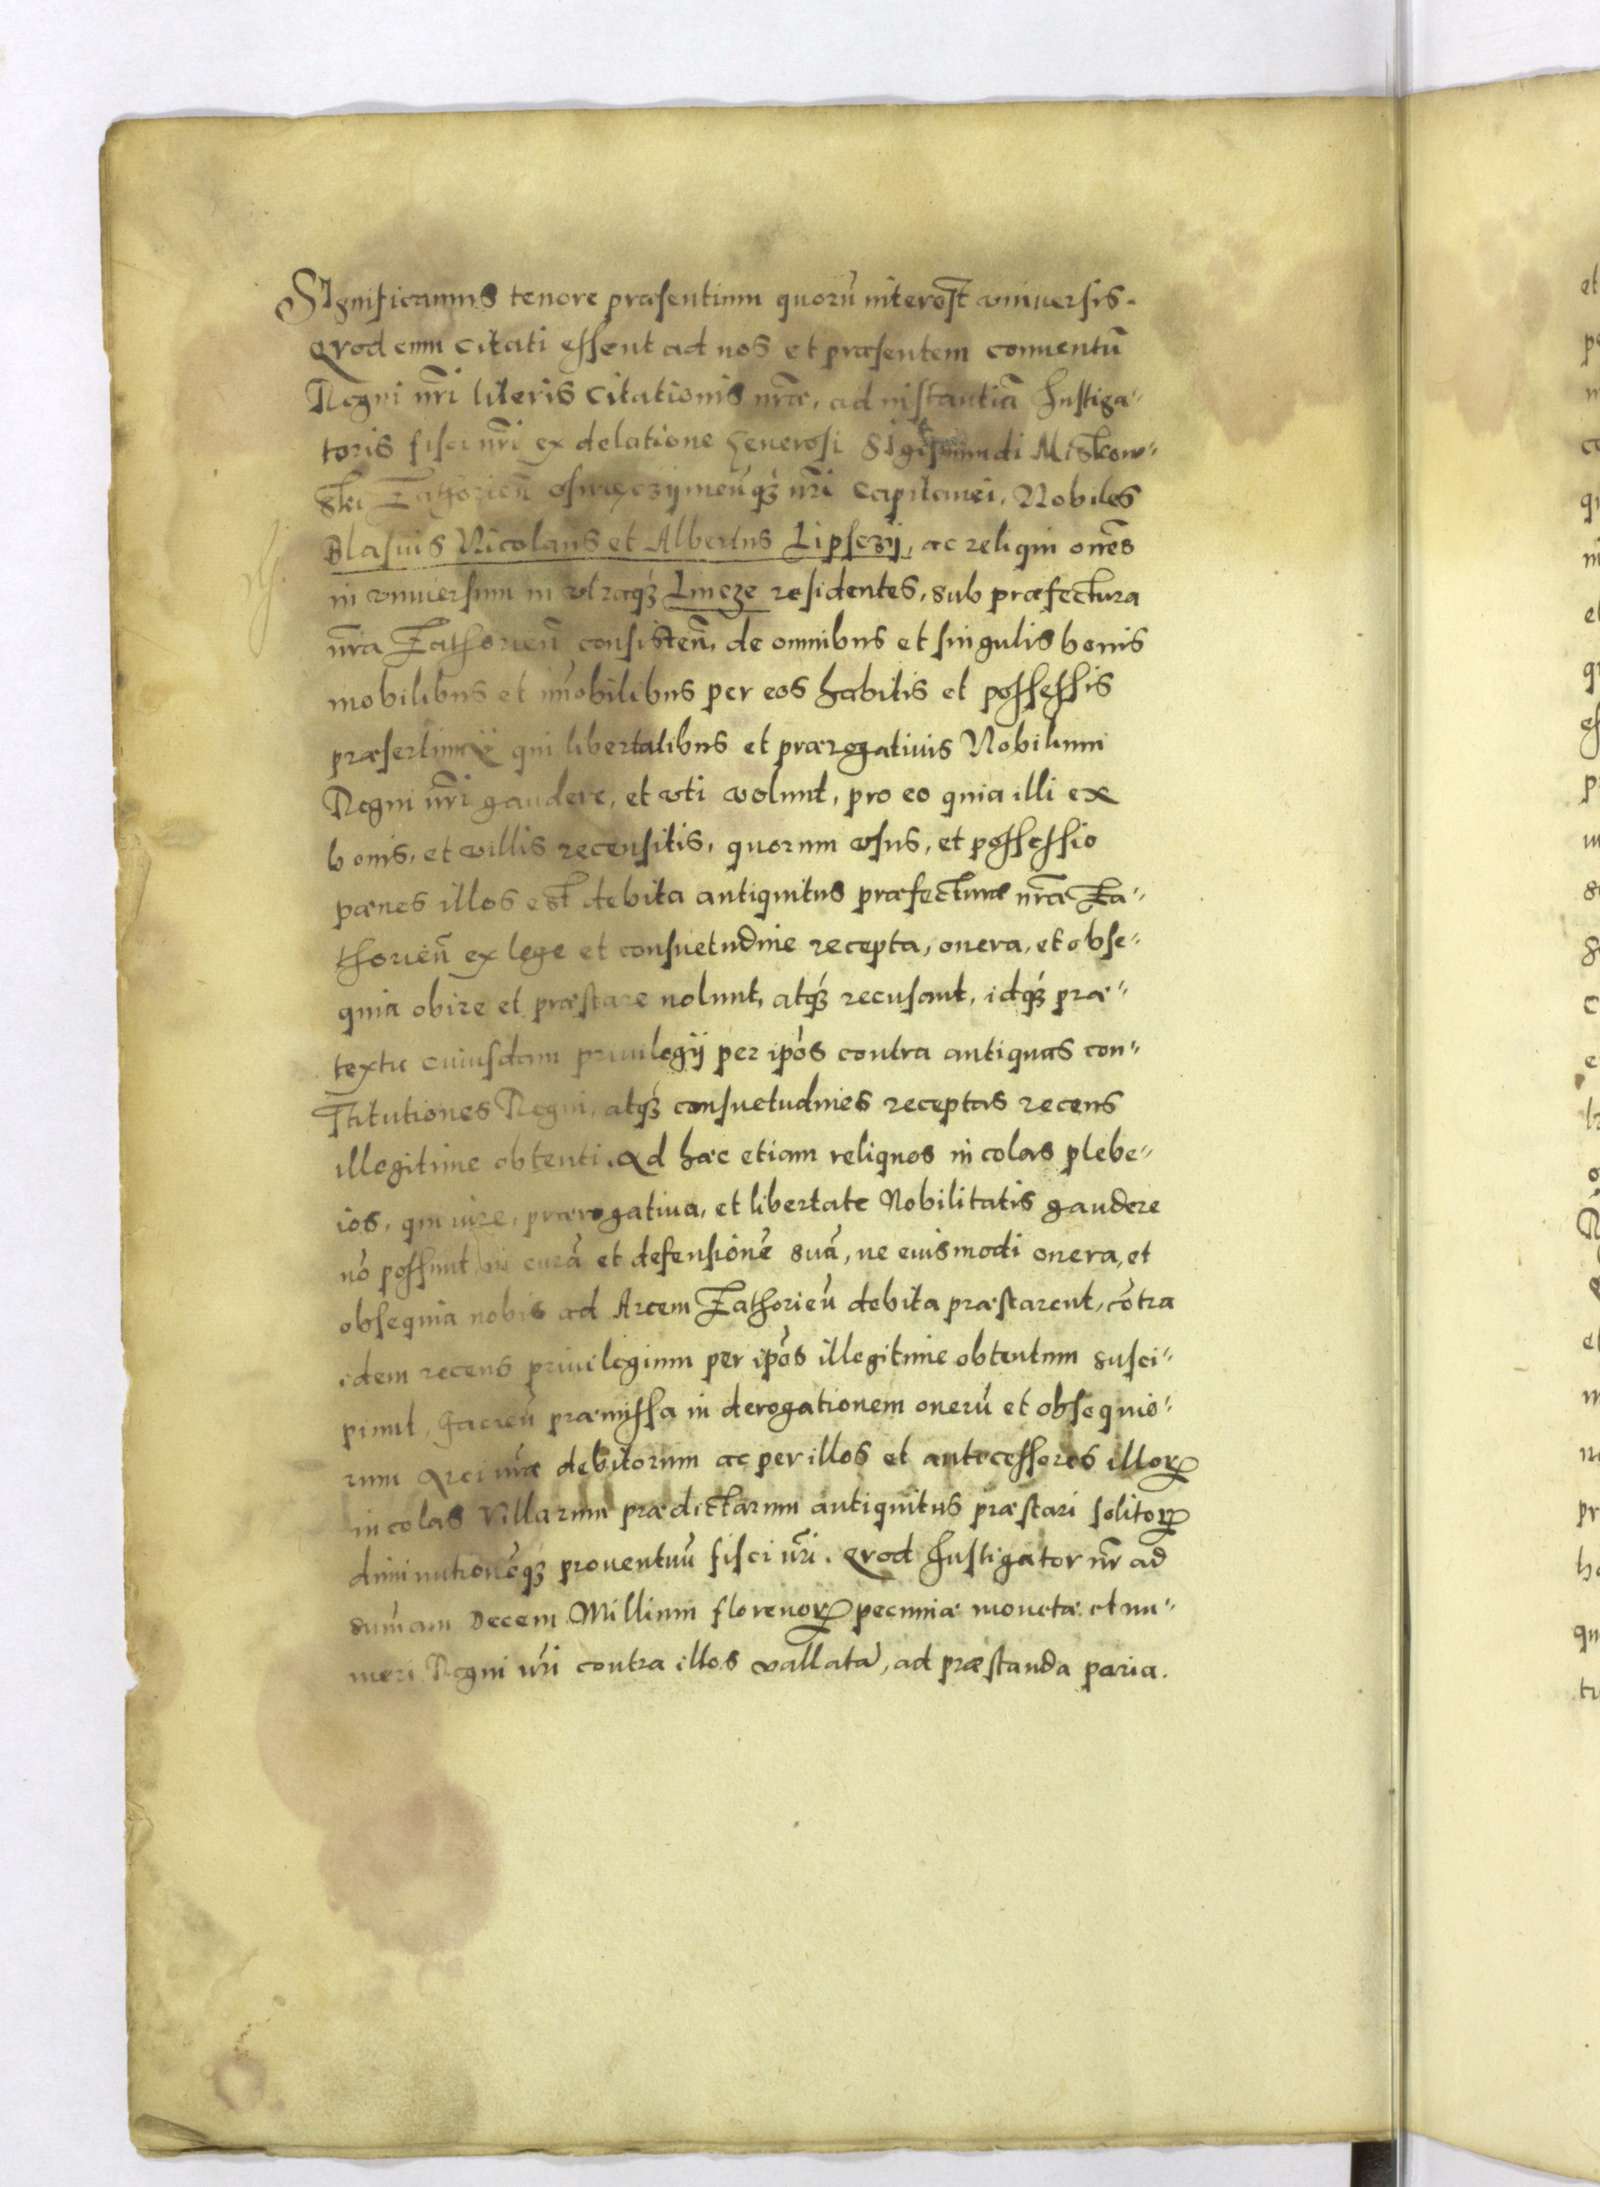 SIgnificamus tenore præsentium quorū interest vniuersis.
Qvod cum citati essent ad nos et præsentem conuentū
Regni nr̄i literis Citationis nr̄æ, ad instantiā Instiga-
toris fisci nr̄i ex delatione Generosi Sigismundi Miskow-
ski Zathorień osswyęczijmeńqȝ nr̄i Capitanei, Nobiles
Blasius Nicolaus et Albertus Lipsczij, ac reliqui om̄es
in vniuersum in vtraqȝ Lmcze residentes, sub præfectura
nr̄a Zathorień consisteń, de omnibus et singulis bonis
mobilibus et im̄obilibus per eos habitis et possessis
præsertim qui libertatibus et prærogatiuis Nobilium
Regni nr̄i gaudere, et vti volunt, pro eo quia illi ex
bonis, et villis recensitis, quorum vsus, et possessio
pænes illos est debita antiquitus præfecturæ nr̄æ Za-
thorień ex lege et consuetudine recepta, onera, et obse-
quia obire et præstare nolunt, atqȝ recusant, idqȝ præ-
textu cuiusdam priuilegij per ip̄os contra antiquas con-
stitutiones Regni, atqȝ consuetudines receptas recens
illegitime obtenti. Ad hæc etiam reliquos incolas plebe-
ios, qui iure, prærogatiua, et libertate Nobilitatis gaudere
nō possunt in curā et defensionē suā, ne eiusmodi onera, et
obsequia nobis ad Arcem Zathorień debita præstarent, cōtra
idem recens priuilegium per ip̄os illegitime obtentum susci-
piunt, facień præmissa in derogationem onerū et obsequio-
rum Arci nr̄æ debitorum ac per illos et antecessores illorꝝ
incolas Villarum prædictarum antiquitus præstari solitorꝝ
diminutionēqȝ prouentuū fisci nr̄i. Qvod Instigator nr̄ ad
sum̄am Decem Millium florenorꝝ pecuniæ monetæ et nu-
meri Regni nr̄i contra illos vallata, ad præstanda paria.